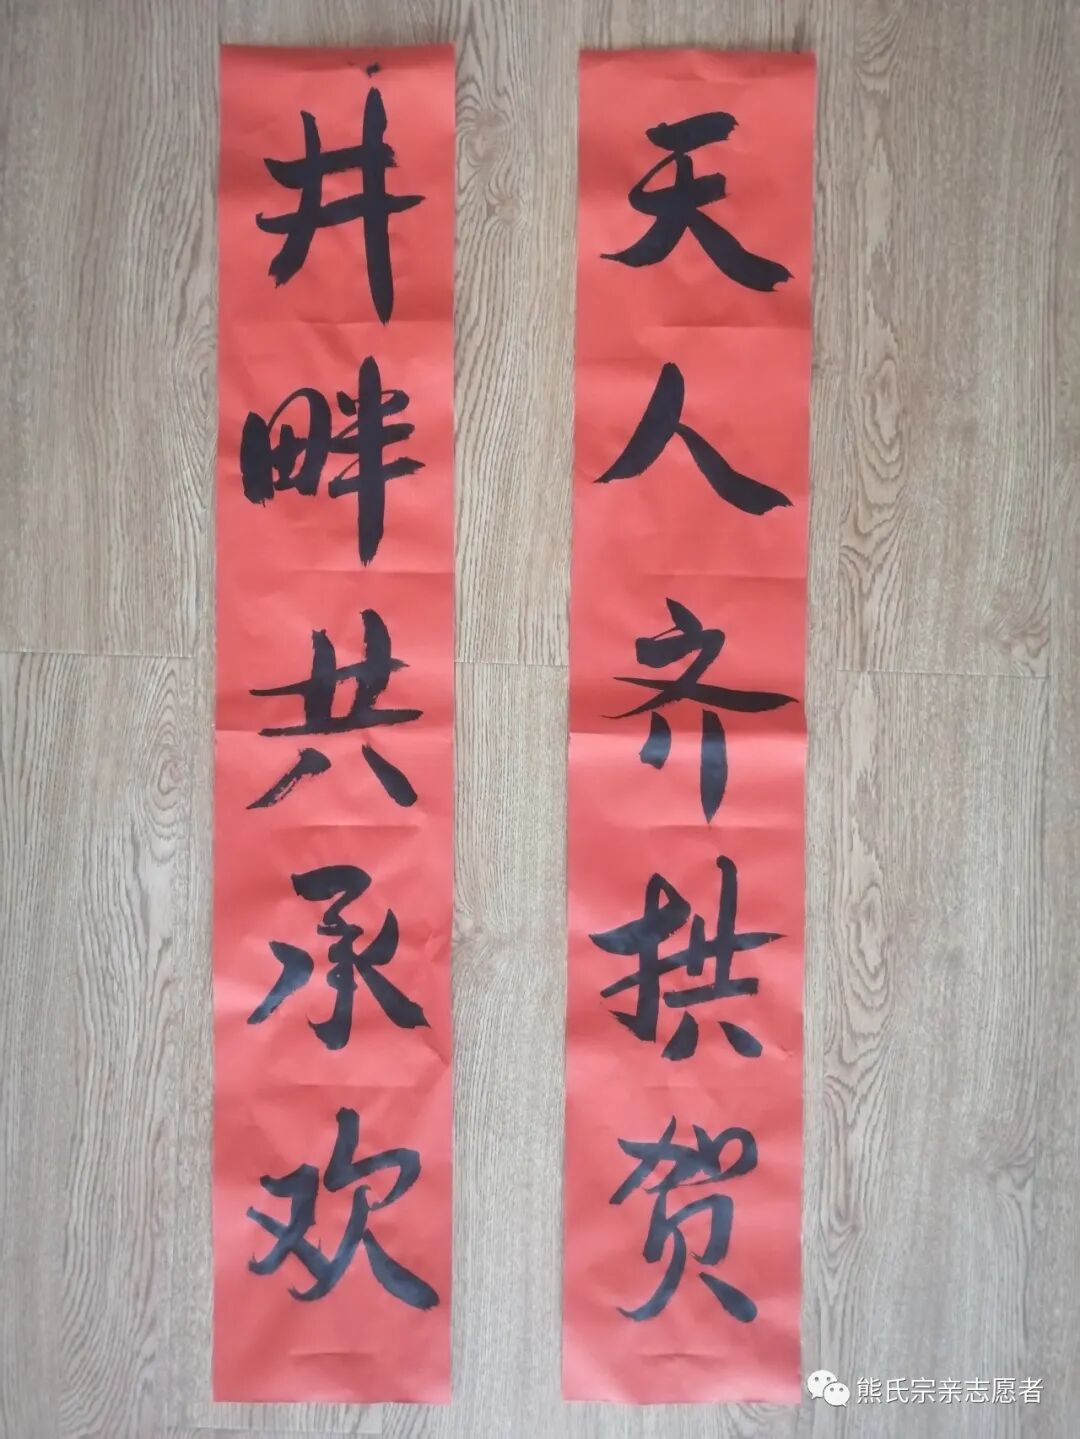 天人齐拱贺
井畔共承欢
熊氏宗亲志愿者